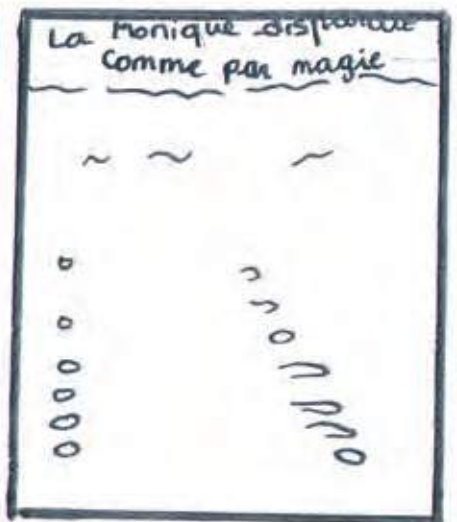 La Monique disparue
Comme par magie